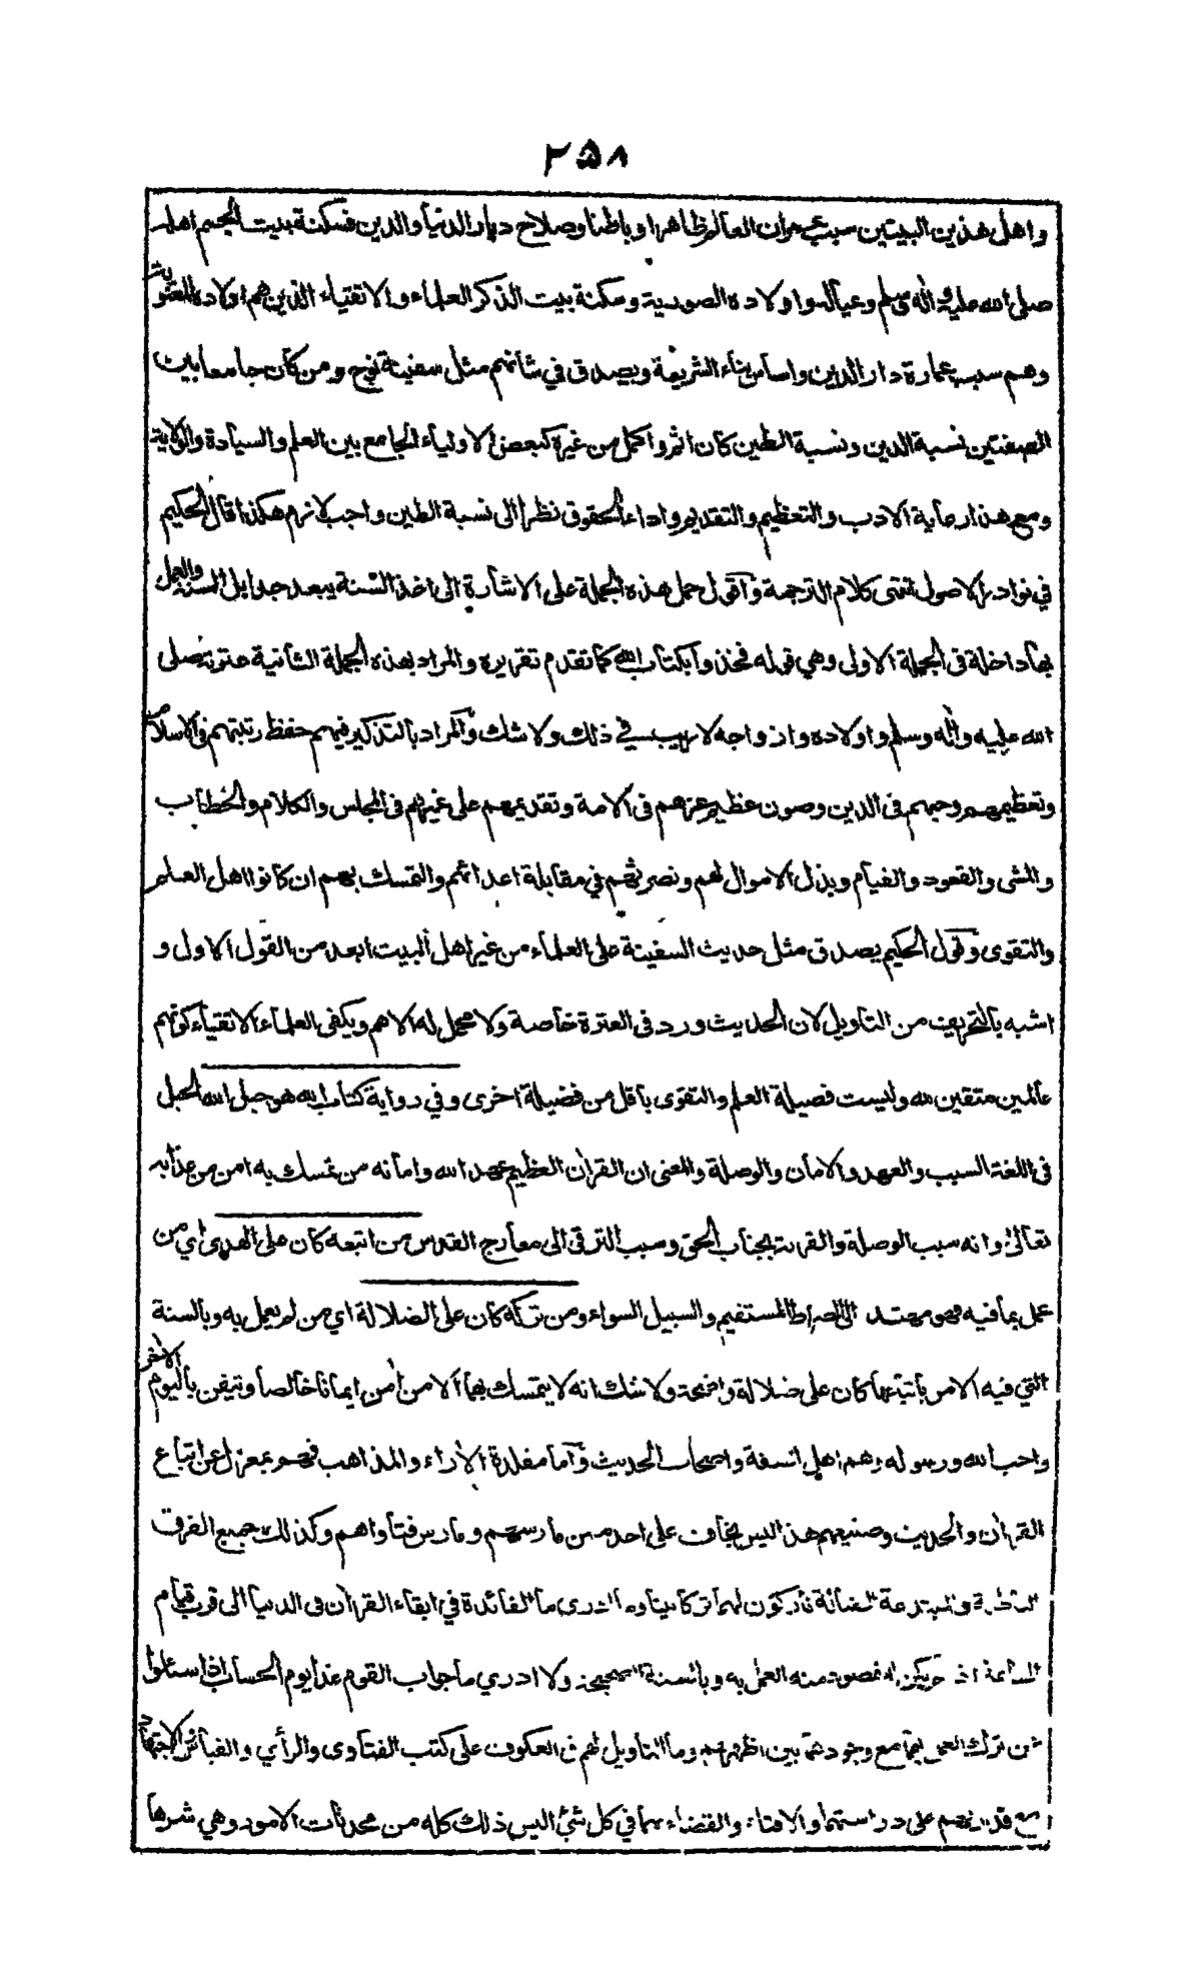 ٢٥٨
واهل هذين البيتين سبب عمران العالم ظاهرا وباطنا وصلاح ديار الدنيا والدين فسكنة بيت الجسم اهله
صلى الله عليه وآله وسلم وعياله واولاده الصورية وسكنة بيت الذكر العلماء والاتقياء الذين هم اولاده المعنوية
وهم سبب عمارة دار الدين واساس بناء الشريعة ويصدق في شأنهم مثل سفينة نوح ومن كان جامعا بين
الصفتين نسبة الدين ونسبة الطين كان اتم واكمل من غيره كبعض الاولياء الجامع بين العلم والسيادة والولاية
ومع هذا رعاية الادب والتعظيم والتقديم واداء الحقوق نظرا الى نسبة الطين واجب لازم هكذا قال الحكيم
في نوادر الاصول انتهى كلام الترجمة واقول حمل هذه الجملة على الاشارة الى اخذ السنة يبعد جدا بل السنة والعمل
بها داخلة في الجملة الاولى وهي قوله فخذوا بكتاب الله كما تقدم تقريره والمراد بهذه الجملة الثانية عترته صلى
الله عليه وآله وسلم واولاده وازواجه لا ريب في ذلك ولا شك والمراد بالتذكير فيهم حفظ رتبتهم في الاسلام
وتعظيمهم وحبهم في الدين وصون عظيم عزهم في الامة وتقديمهم على غيرهم في المجلس والكلام والخطاب
والمشى والقعود والقيام وبذل الاموال لهم ونصرتهم في مقابلة اعدائهم والتمسك بهم ان كانوا اهل العلم
والتقوى وقول الحكيم يصدق مثل حديث السفينة على العلماء من غير اهل البيت ابعد من القول الاول و
اشبه بالتحريف من التاويل لان الحديث ورد في العترة خاصة ولا محمل له الا هم ويكفى العلماء الاتقياء كونهم
عالمين متقين لله وليست فضيلة العلم والتقوى باقل من فضيلة اخرى وفي رواية كتاب الله هو حبل الله الحبل
في اللغة السبب والعهد والامان والوصلة والمعنى ان القران العظيم عهد الله وامانه من تمسك به امن من عذابه
تعالى وانه سبب الوصلة والقربة بجناب الحق وسبب الترقى الى معارج القدس من اتبعه كان على الهدى اي من
عمل بما فيه فهو مهتد الى الصراط المستقيم والسبيل السواء ومن تركه كان على الضلالة اي من لم يعمل به وبالسنة
التي فيه الامر باتباعها كان على ضلالة واضحة ولا شك انه لا يتمسك بهما الا من آمن ايمانا خالصا وتيقن باليوم الآخر
واحب الله ورسوله وهم اهل السنة واصحاب الحديث واما مقلدة الآراء والمذاهب فهم بمعزل عن اتباع
القران والحديث وصنيعهم هذا ليس بخاف على احد ممن مارسهم ومارس فتاواهم وكذلك جميع الفرق
والمبتدعة الضالة تاركون لهما تركا بينا وما ادرى ما الفائدة في ابقاء القران في الدنيا الى قرب قيام
الساعة اذ لم يكن المقصود منه العمل به وبالسنة الصحيحة ولا ادري ما جواب القوم غدا يوم الحساب اذا سئلوا
عن ترك العمل بهما مع وجودهما بين اظهرهم وما التاويل لهم في العكوف على كتب الفتاوى والرأي والقياس والاجتهاد
مع قدرتهم على دراستهما والافتاء والقضاء بهما في كل شئ اليس ذلك كله من محدثات الامور وهي شرها